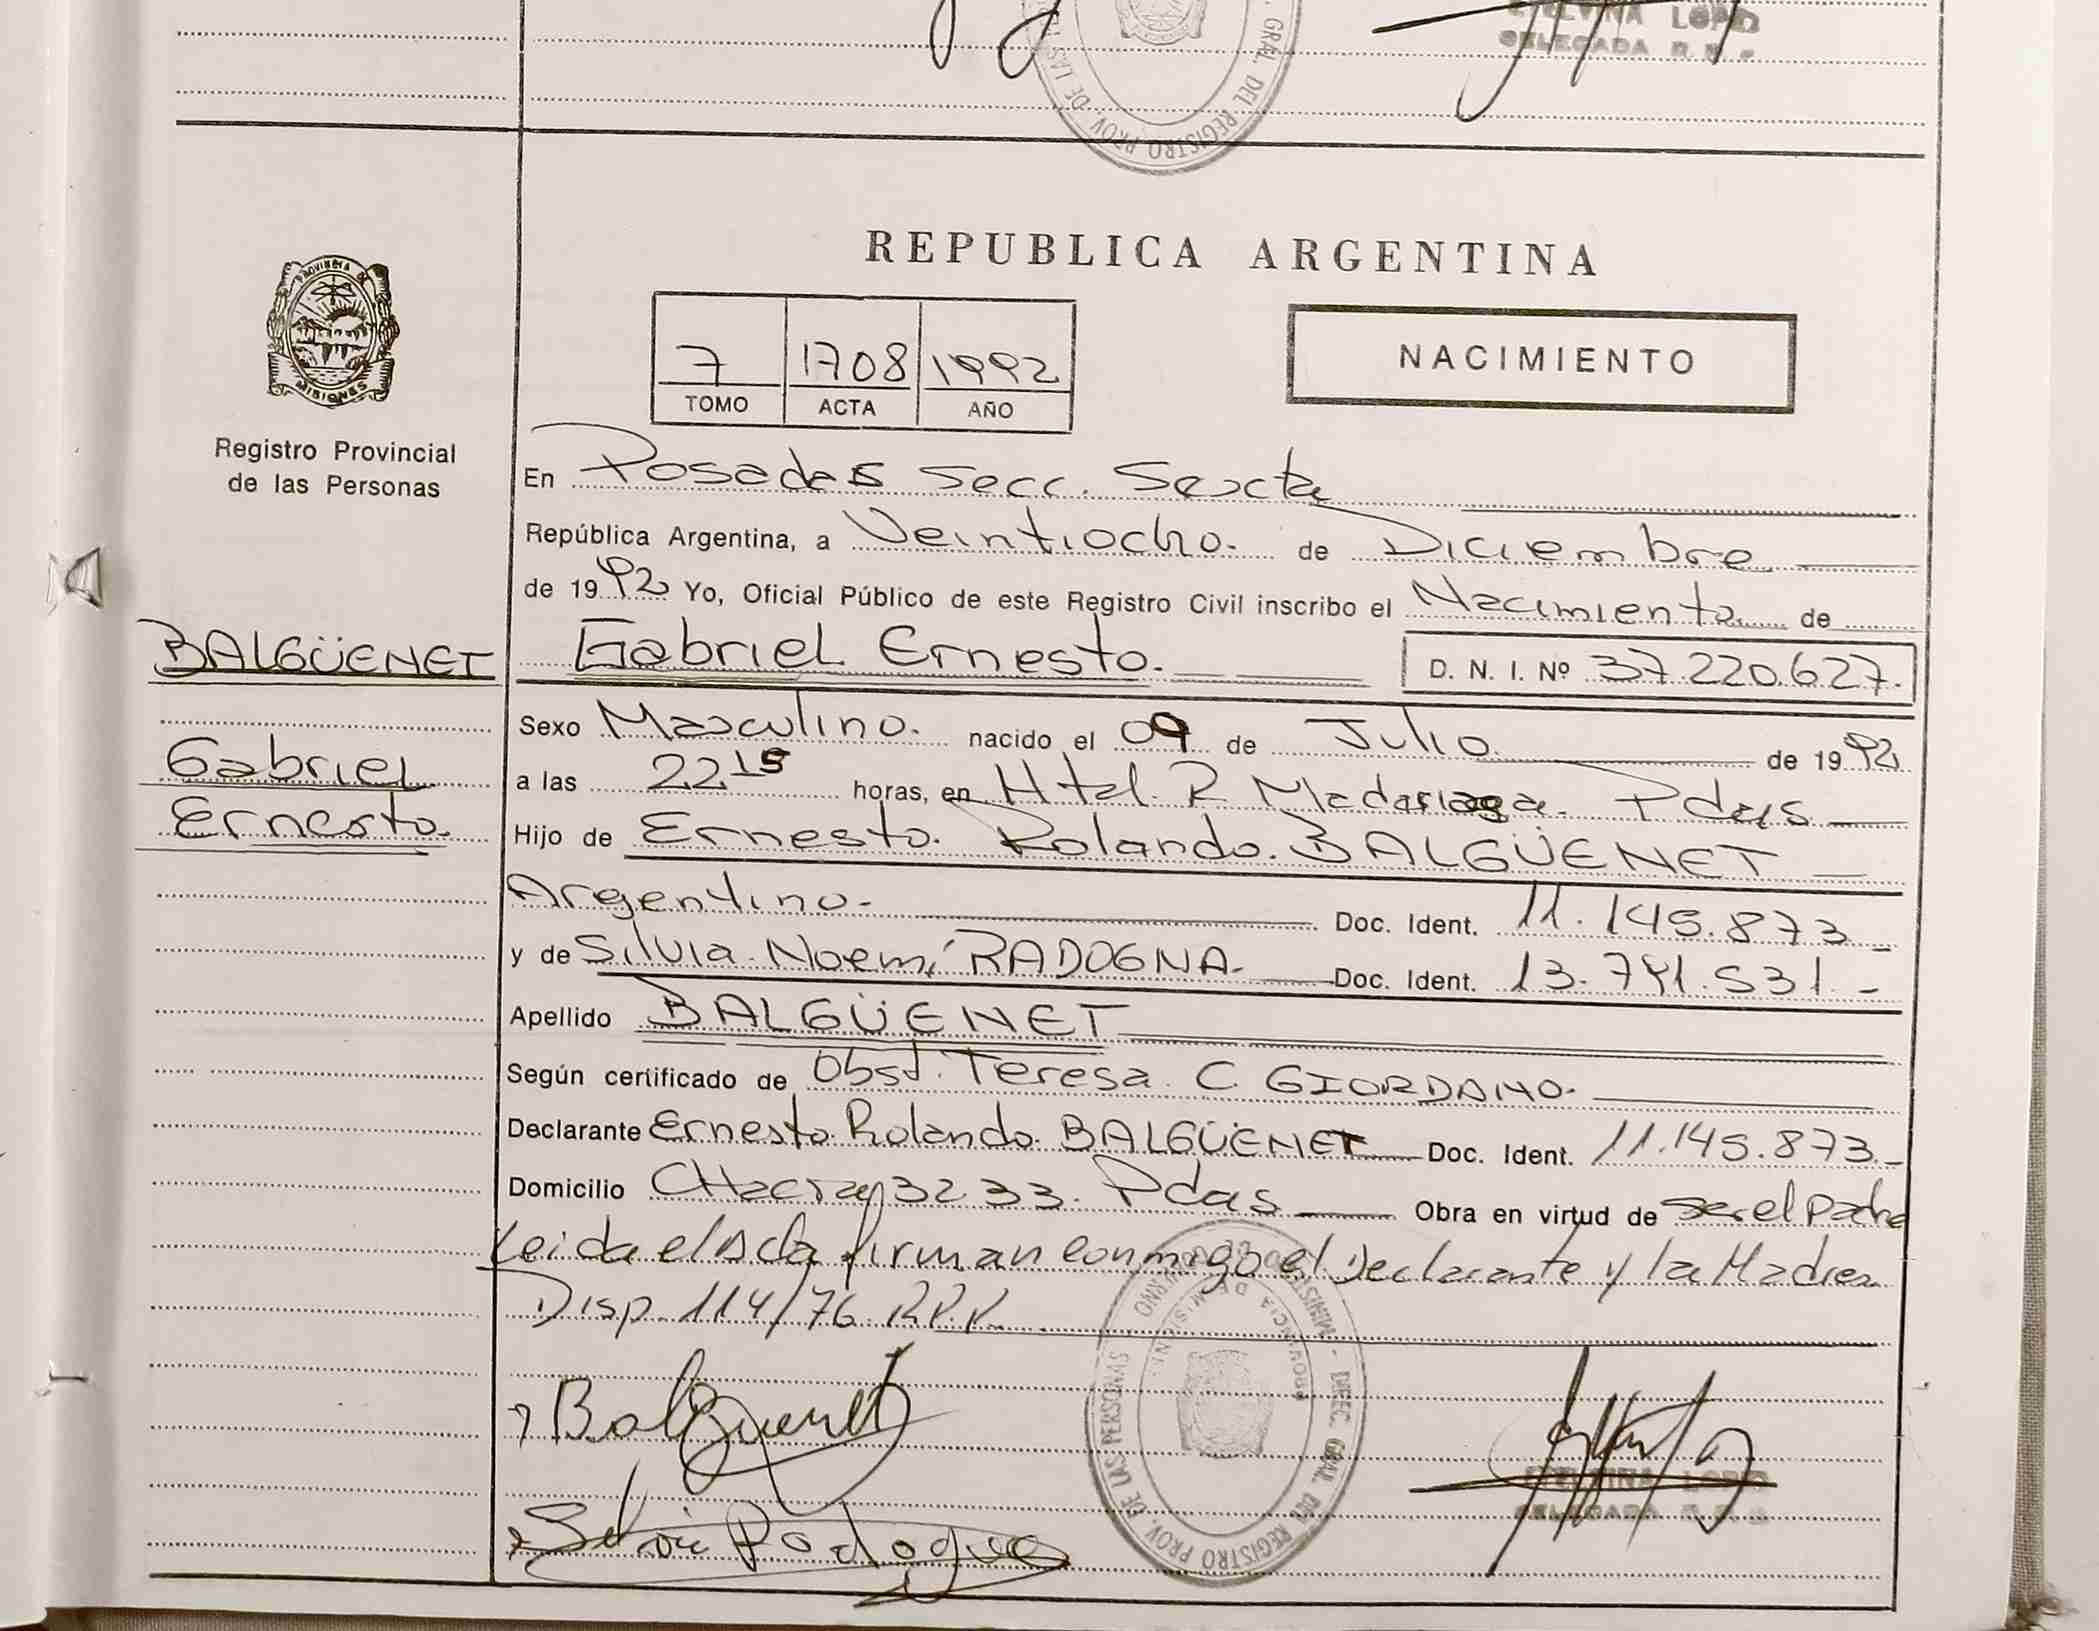 GRAL. DEL REGISTRO PROV. DE LAS
LOPEZ
DELEGADA R.
REPUBLICA ARGENTINA
PROVINCIA DE
MISIONES
7 1708 1992
TOMO ACTA AÑO
NACIMIENTO
Registro Provincial
de las Personas
En Posadas Secc. Sexta
República Argentina, a Veintiocho. de Diciembre
de 1992 Yo, Oficial Público de este Registro Civil inscribo el Nacimiento de
BALGÜENET
Gabriel Ernesto. D. N. I. Nº 37.220.627.
Sexo Masculino. nacido el 09 de Julio de 1992
Gabriel
a las 22 15 horas, en Htal. R Madariaga. Pdas
Ernesto.
Hijo de Ernesto. Rolando. BALGÜENET
Argentino. Doc. Ident. 11.145.873
y de Silvia Noemí RADOGNA. Doc. Ident. 13.741.531.
Apellido BALGÜENET
Según certificado de Obst. Teresa C. GIORDANO.
Declarante Ernesto Rolando BALGÜENET Doc. Ident. 11.145.873.
Domicilio CHacra 3233. Pdas Obra en virtud de ser el Padre
Leida el Acta firman conmigo el Declarante y la Madre
Disp. 114/76 R.P.P.
Balguenet
Silvia Radogna
MINISTERIO DE GOBIERNO - DIREC. GRAL. DEL REGISTRO PROV. DE LAS PERSONAS
PROVINCIA DE MISIONES
LOPEZ
DELEGADA R.